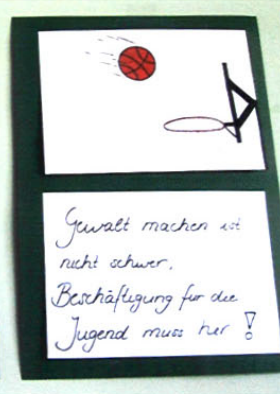 Gewalt machen ist
nicht schwer,
Beschäftigung für die
Jugend muss her!